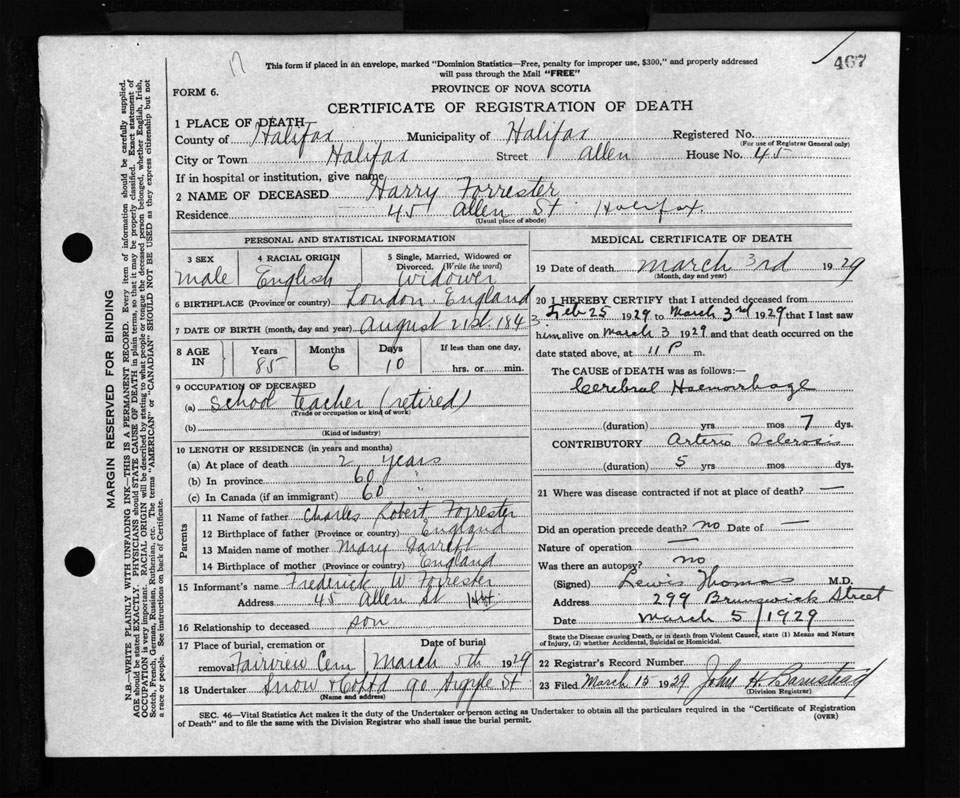 467
This form if placed in an envelope, marked "Dominion Statistics—Free, penalty for improper use, $300," and properly addressed
will pass through the Mail "FREE"
FORM 6.
PROVINCE OF NOVA SCOTIA
CERTIFICATE OF REGISTRATION OF DEATH
1 PLACE OF DEATH
County of Halifax Municipality of Halifax Registered No.
(For use of Registrar General only)
City or Town Halifax Street Allen House No. 45
If in hospital or institution, give name
2 NAME OF DECEASED Harry Forrester
Residence 45 Allen St Halifax.
(Usual place of abode)
PERSONAL AND STATISTICAL INFORMATION
3 SEX 4 RACIAL ORIGIN 5 Single, Married, Widowed or
Divorced. (Write the word)
Male English Widower
6 BIRTHPLACE (Province or country) London England
7 DATE OF BIRTH (month, day and year) August 21st. 1843.
8 AGE IN Years Months Days If less than one day,
85 6 10 hrs. or min.
9 OCCUPATION OF DECEASED
(a) School teacher (retired)
(Trade or occupation or kind of work)
(b)
(Kind of industry)
10 LENGTH OF RESIDENCE (in years and months)
(a) At place of death 2 years
(b) In province 60 "
(c) In Canada (if an immigrant) 60 "
Parents
11 Name of father Charles Robert Forrester
12 Birthplace of father (Province or country) England
13 Maiden name of mother Mary
14 Birthplace of mother (Province or country) England
15 Informant's name Frederick W Forrester
Address 45 Allen St Hfx
16 Relationship to deceased son
17 Place of burial, cremation or Date of burial
removal Fairview Cem March 5th 1929
18 Undertaker Snow & 90 Argyle St
(Name and address)
MEDICAL CERTIFICATE OF DEATH
19 Date of death March 3rd 1929
(Month, day and year)
20 I HEREBY CERTIFY that I attended deceased from
Feb 25 1929 to March 3rd 1929 that I last saw
him alive on March 3 1929 and that death occurred on the
date stated above, at 11 P m.
The CAUSE of DEATH was as follows:—
Cerebral Haemorrhage
(duration) yrs mos 7 dys.
CONTRIBUTORY Arterio Sclerosis
(duration) 5 yrs mos dys.
21 Where was disease contracted if not at place of death? —
Did an operation precede death? no Date of —
Nature of operation —
Was there an autopsy? no
(Signed) Lewis Thomas M.D.
Address 299 Brunswick Street
Date March 5 / 1929
State the Disease causing Death, or in death from Violent Causes, state (1) Means and Nature
of Injury, (2) whether Accidental, Suicidal or Homicidal.
22 Registrar's Record Number
23 Filed March 15 1929 John H Barnstead
(Division Registrar)
SEC. 46—Vital Statistics Act makes it the duty of the Undertaker or person acting as Undertaker to obtain all the particulars required in the "Certificate of Registration
of Death" and to file the same with the Division Registrar who shall issue the burial permit.
(OVER)
MARGIN RESERVED FOR BINDING
N.B.—WRITE PLAINLY WITH UNFADING INK—THIS IS A PERMANENT RECORD. Every item of information should be carefully supplied.
AGE should be stated EXACTLY. PHYSICIANS should STATE CAUSE OF DEATH in plain terms, so that it may be properly classified. Exact statement of
OCCUPATION is very important. RACIAL ORIGIN will be described by stating to what people or tongue the deceased person belonged, whether English, Irish,
Scotch, French, German, Russian, Ruthenian, etc. The terms "AMERICAN" or "CANADIAN" SHOULD NOT BE USED as they express citizenship but not
a race or people. See instructions on back of Certificate.